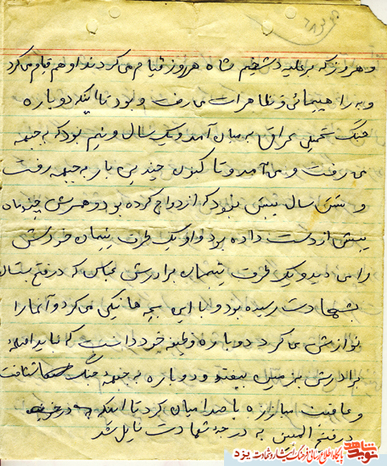 و هر روز که بر علیه رژیم شاه هر روز قیام می‌کردند او هم قیام می‌کرد
و به راهپیمائی و تظاهرات می رفت و بود تا اینکه دوباره
جنگ تحمیلی عراق به میان آمد و یک سال و نیم بود که به جبهه
می رفت و می آمد و تا کنون چندین بار به جبهه رفت
و شش سال پیش بود که ازدواج کرده بود و همسرش چند ماه
پیش از دست داده بود و او یک طرف یتیمان خودش
را می دید و یک طرف یتیمان برادرش عباس که در فتح بستان
بشهادت رسیده بود و با این بچه ها نیکی می کرد و آنها را
نوازش می کرد دوباره وظیفه خود دانست که نباید اسلحه
برادرش بر زمین بیفتد و دوباره به جبهه جنگ شتافت
و عاقبت مبارزه با صدامیان کرد تا اینکه
در فتح المبین به درجه شهادت نایل شد
نوید شاهد
پایگاه اطلاع رسانی فرهنگ ایثار و شهادت یزد